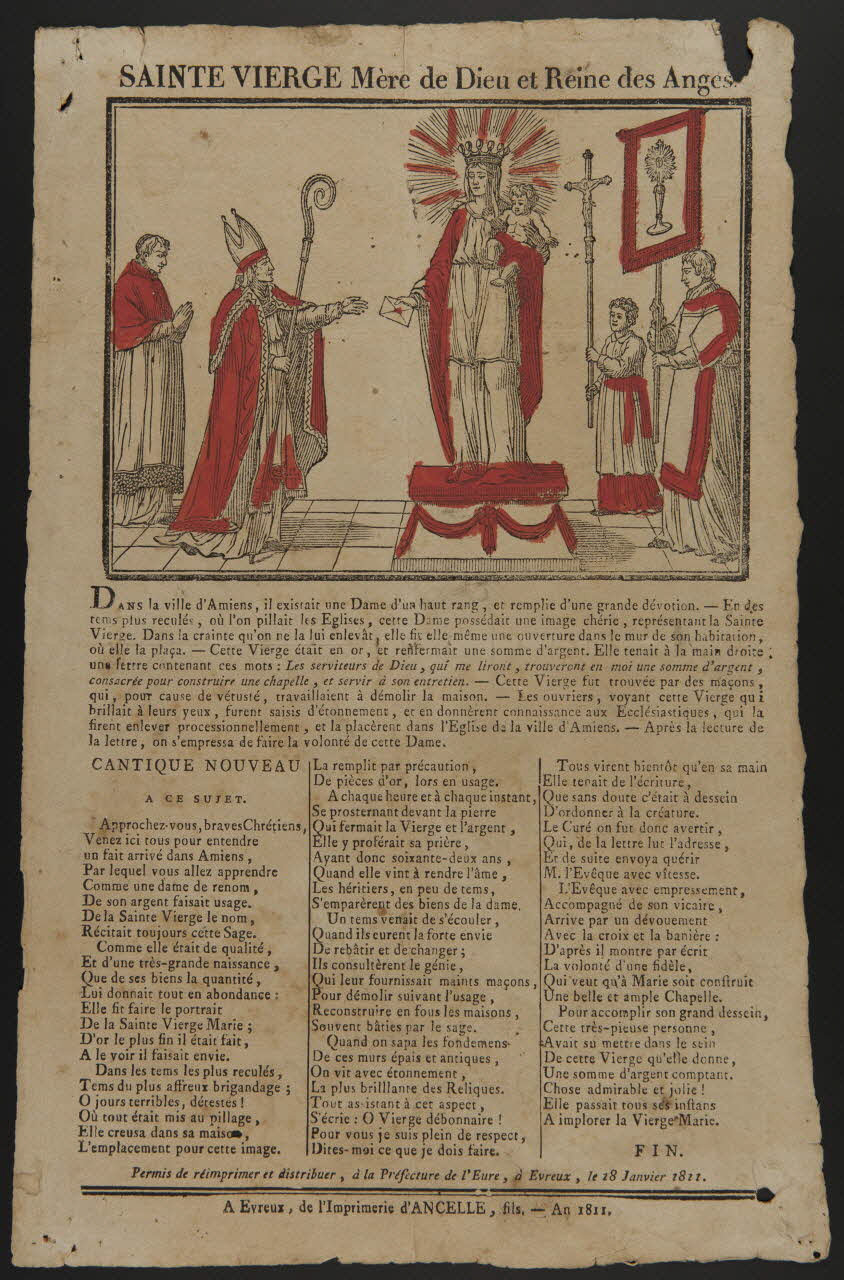 SAINTE VIERGE Mère de Dieu et Reine des Anges.
DANS la ville d'Amiens, il existait une Dame d'un haut rang, et remplie d'une grande dévotion. — En des
tems plus reculés, où l'on pillait les Eglises, cette Dame possédait une image chérie, représentant la Sainte
Vierge. Dans la crainte qu'on ne la lui enlevât, elle fit elle même une ouverture dans le mur de son habitation,
où elle la plaça. — Cette Vierge était en or, et renfermait une somme d'argent. Elle tenait à la main droite
une lettre contenant ces mots : Les serviteurs de Dieu, qui me liront, trouveront en moi une somme d'argent,
consacrée pour construire une chapelle, et servir à son entretien. — Cette Vierge fut trouvée par des maçons,
qui, pour cause de vétusté, travaillaient à démolir la maison. — Les ouvriers, voyant cette Vierge qui
brillait à leurs yeux, furent saisis d'étonnement, et en donnèrent connaissance aux Ecclésiastiques, qui la
firent enlever processionnellement, et la placèrent dans l'Eglise de la ville d'Amiens. — Après la lecture de
la lettre, on s'empressa de faire la volonté de cette Dame.
CANTIQUE NOUVEAU
A CE SUJET.
Approchez-vous, braves Chrétiens,
Venez ici tous pour entendre
un fait arrivé dans Amiens,
Par lequel vous allez apprendre
Comme une dame de renom,
De son argent faisait usage.
De la Sainte Vierge le nom,
Récitait toujours cette Sage.
Comme elle était de qualité,
Et d'une très-grande naissance,
Que de ses biens la quantité,
Lui donnait tout en abondance :
Elle fit faire le portrait
De la Sainte Vierge Marie ;
D'or le plus fin il était fait,
A le voir il faisait envie.
Dans les tems les plus reculés,
Tems du plus affreux brigandage ;
O jours terribles, détestes !
Où tout était mis au pillage,
Elle creusa dans sa maison,
L'emplacement pour cette image.
La remplit par précaution,
De pièces d'or, lors en usage.
A chaque heure et à chaque instant,
Se prosternant devant la pierre
Qui fermait la Vierge et l'argent,
Elle y proférait sa prière,
Ayant donc soixante-deux ans,
Quand elle vint à rendre l'âme,
Les héritiers, en peu de tems,
S'emparèrent des biens de la dame.
Un tems venait de s'écouler,
Quand ils eurent la forte envie
De rebâtir et de changer ;
Ils consultèrent le génie,
Qui leur fournissait maints maçons,
Pour démolir suivant l'usage,
Reconstruire en fous les maisons,
Souvent bâties par le sage.
Quand on sapa les fondemens
De ces murs épais et antiques,
On vit avec étonnement,
La plus brilllante des Reliques.
Tout assistant à cet aspect,
S'écrie : O Vierge débonnaire !
Pour vous je suis plein de respect,
Dites-moi ce que je dois faire.
Tous virent bientôt qu'en sa main
Elle tenait de l'écriture,
Que sans doute c'était à dessein
D'ordonner à la créature.
Le Curé on fut donc avertir,
Qui, de la lettre lut l'adresse,
Et de suite envoya quérir
M. l'Evêque avec vîtesse.
L'Evêque avec empressement,
Accompagné de son vicaire,
Arrive par un dévouement
Avec la croix et la banière :
D'après il montre par écrit
La volonté d'une fidèle,
Qui veut qu'à Marie soit construit
Une belle et ample Chapelle.
Pour accomplir son grand dessein,
Cette très-pieuse personne,
Avait su mettre dans le sein
De cette Vierge qu'elle donne,
Une somme d'argent comptant.
Chose admirable et jolie !
Elle passait tous ses instans
A implorer la Vierge Marie.
FIN.
Permis de réimprimer et distribuer, à la Préfecture de l'Eure, à Evreux, le 18 Janvier 1811.
A Evreux, de l'Imprimerie d'ANCELLE, fils. — An 1811.